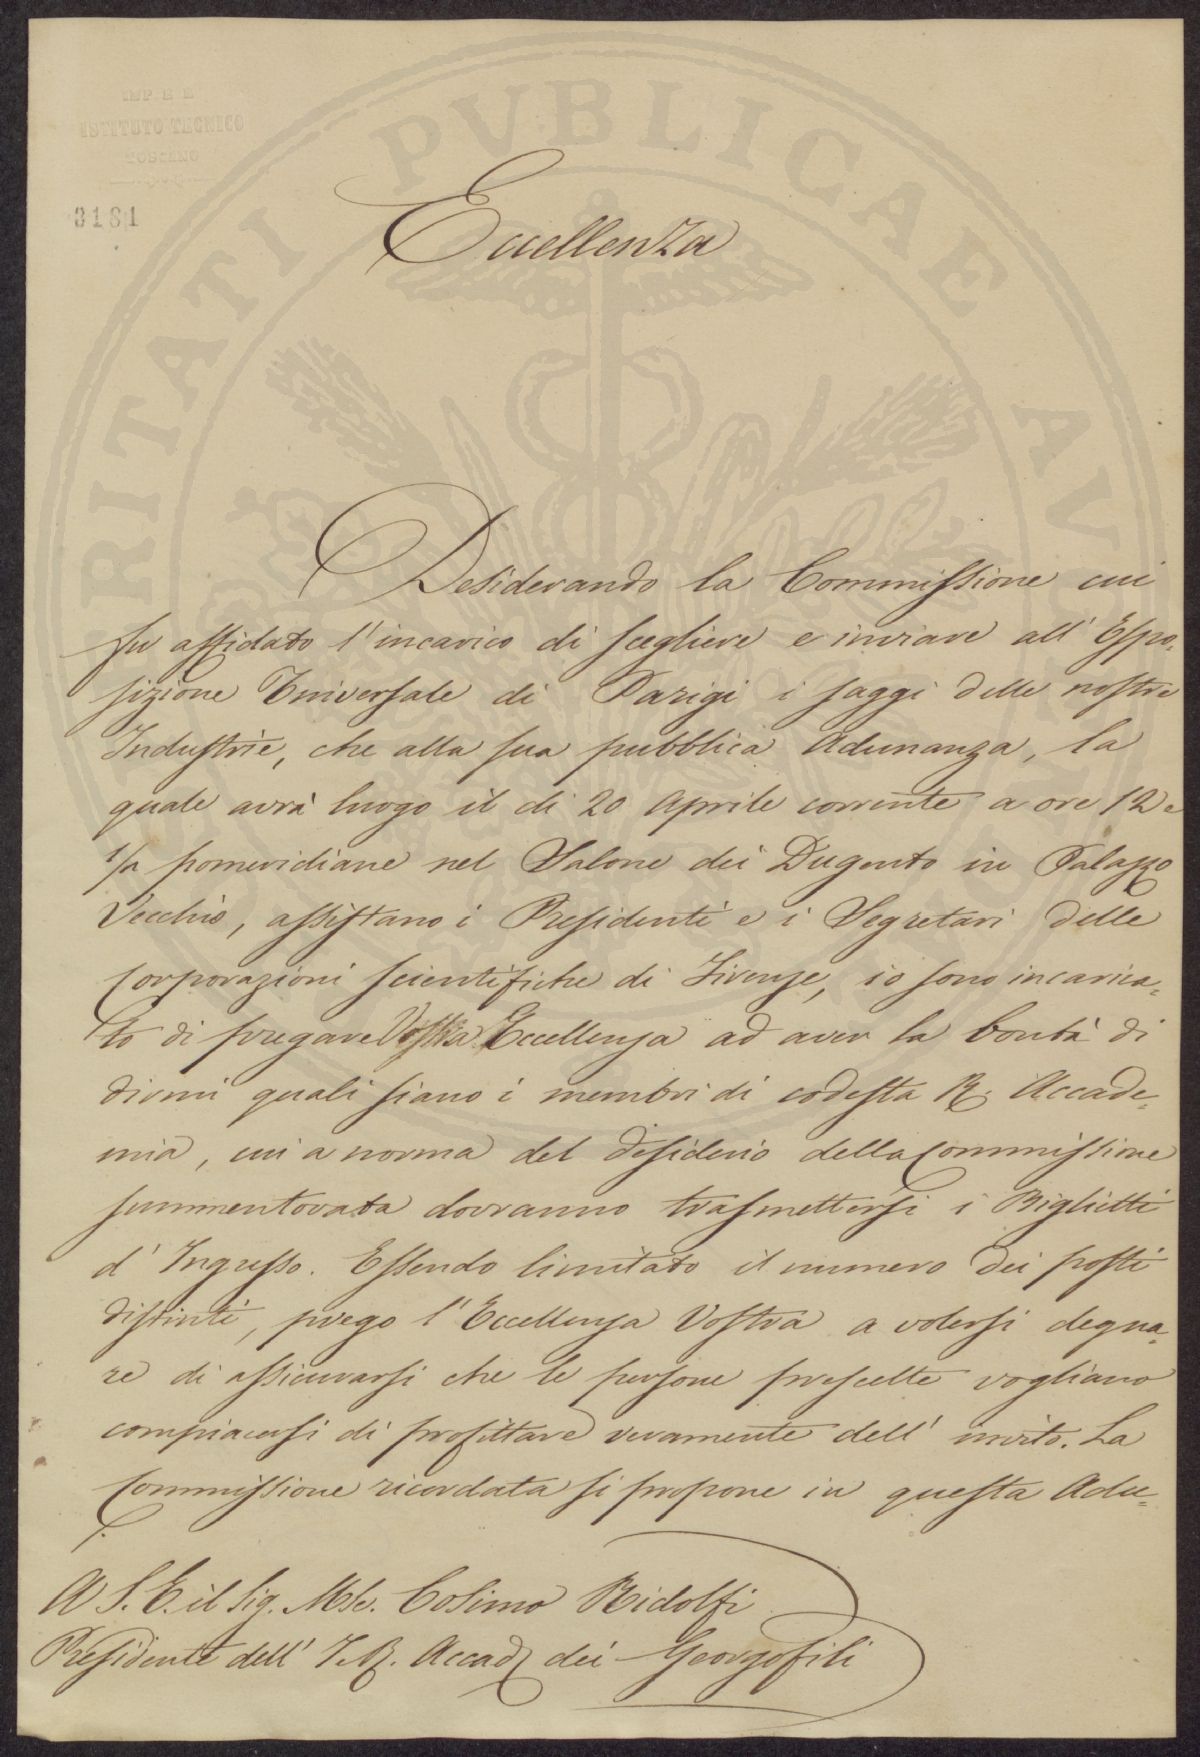 IMP. E R.
ISTITUTO TECNICO
TOSCANO
3181
PROSPERITATI PVBLICAE AVGENDAE
Eccellenza
Desiderando la Commissione cui
fu affidato l'incarico di scegliere e inviare all' Espo=
sizione Universale di Parigi i saggi delle nostre
Industrie, che alla sua pubblica Adunanza, la
quale avrà luogo il di 20 Aprile corrente a ore 12 e
1/2 pomeridiane nel Salone dei Dugento in Palazzo
Vecchio, assistano i Presidenti e i Segretari delle
Corporazioni scientifiche di Firenze, io sono incarica=
to di pregare Vostra Eccellenza ad aver la bontà di
dirmi quali siano i membri di codesta R. Accade=
mia, cui a norma del desiderio della Commissione
summentovata dovranno trasmettersi i Biglietti
d' Ingresso. Essendo limitato il numero dei posti
distinti, prego l' Eccellenza Vostra a volersi degna=
re di assicurarsi che le persone prescelte vogliano
compiacersi di profittare veramente dell' invito. La
Commissione ricordata si propone in questa Adu=
A S. E. il Sig. Mse. Cosimo Ridolfi
Presidente dell' I. R. Accad. dei Georgofili